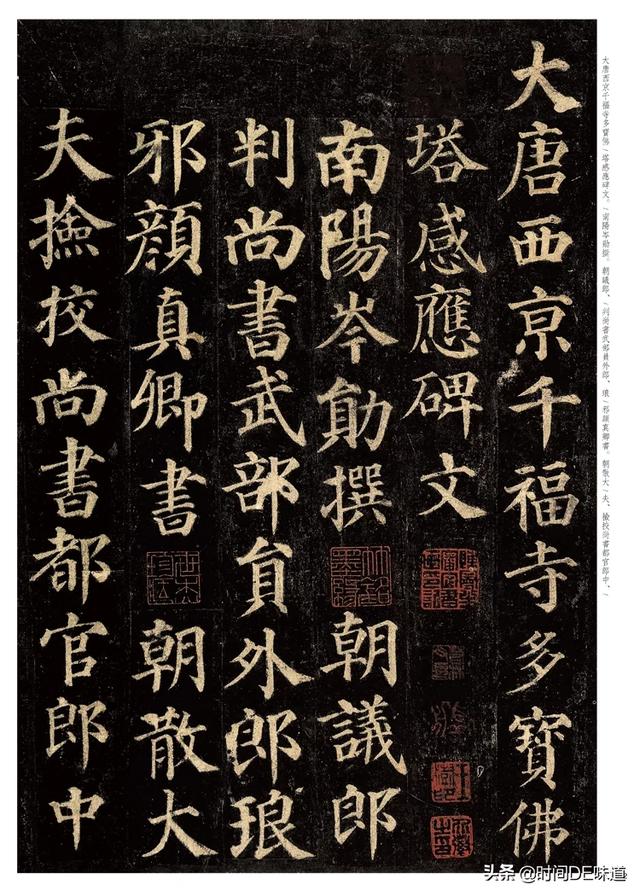 大唐西京千福寺多寶佛
塔感應碑文
南陽岑勛撰 朝議郎
判尚書武部員外郎琅
邪顏真卿書 朝散大
夫撿校尚書都官郎中
大唐西京千福寺多寶佛/塔感應碑文。/南陽岑勛撰。朝議郎、/判尚書武部員外郎、琅/邪顏真卿書。朝散大/夫、撿校尚書都官郎中、/
头条 @时间DE味道